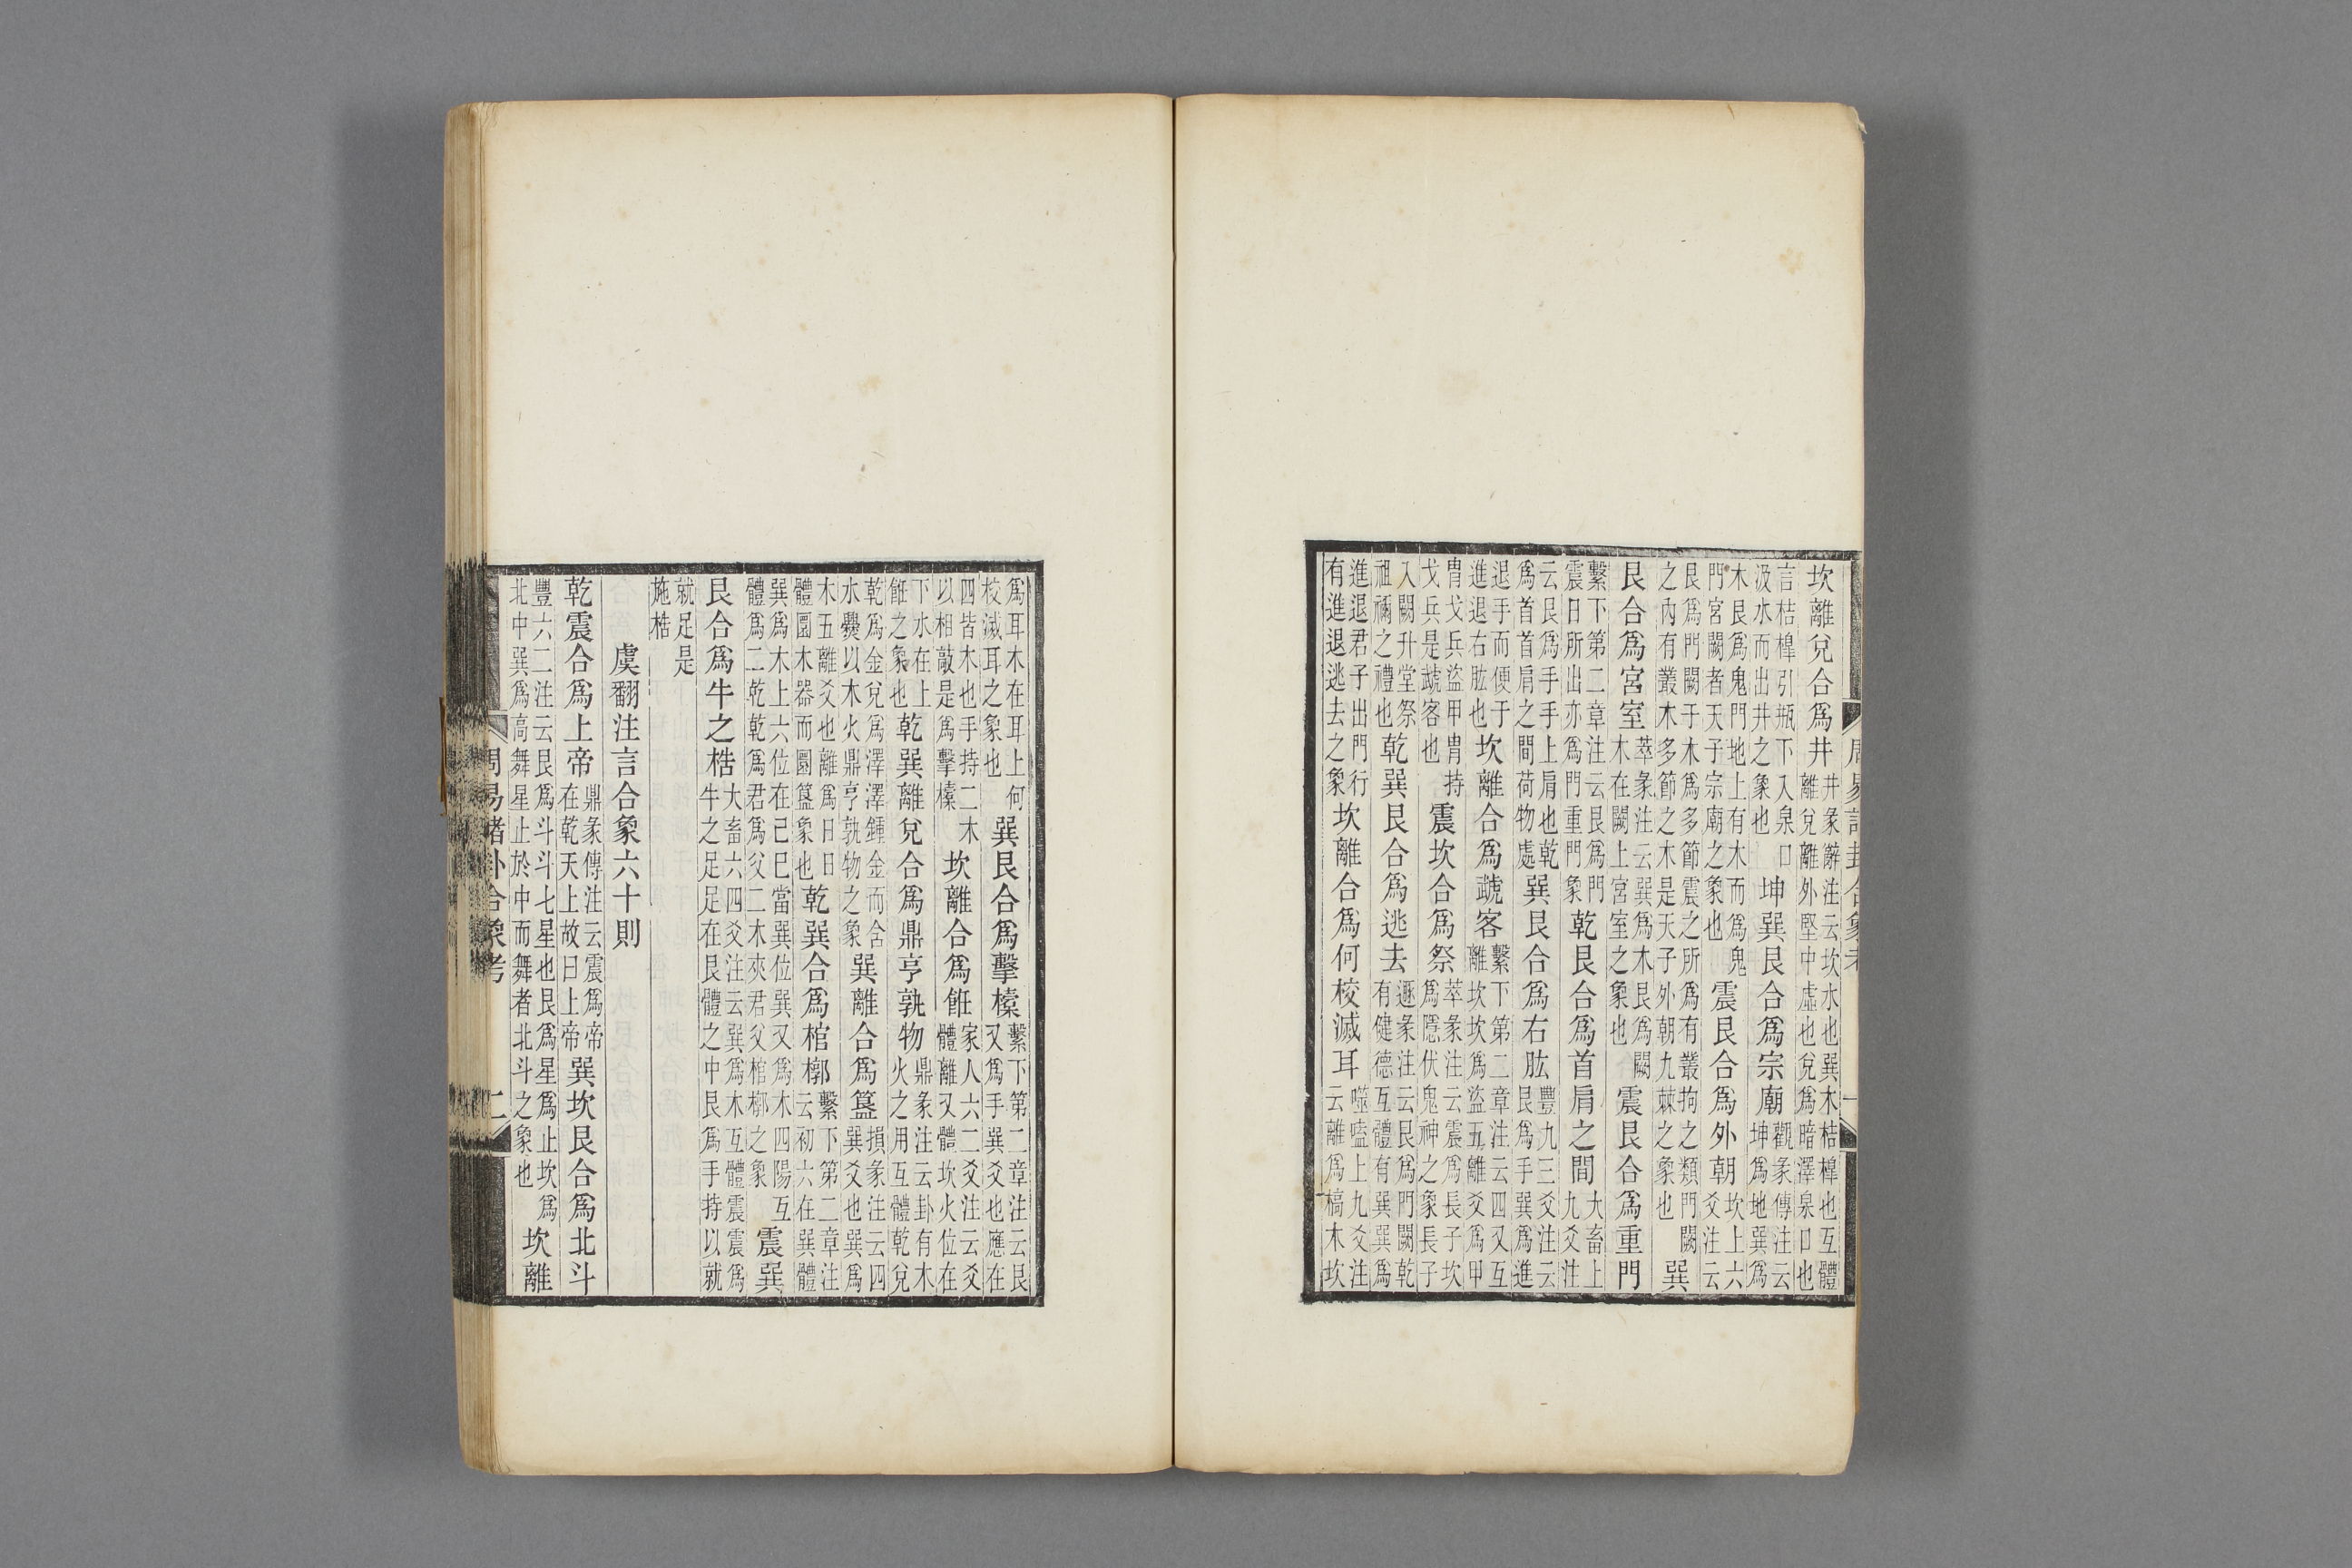 坎離兌合爲井井彖辭注云坎水也巽木桔槔也互體離兌離外堅中虛也兌爲暗澤泉口也
言桔槔引瓶下入泉口汲水而出井之象也坤巽艮合爲宗廟觀彖傳注云坤爲地巽爲
木艮爲鬼門地上有木而爲鬼門宮闕者天子宗廟之象也震艮合爲外朝坎上六爻注云
艮爲門闕于木爲多節震之所爲有叢拘之類門闕之內有叢木多節之木是天子外朝九棘之象也巽
艮合爲宮室萃彖注云巽爲木艮爲闕木在闕上宮室之象也震艮合爲重門
繫下第二章注云艮爲門震日所出亦爲門重門象乾艮合爲首肩之間大畜上九爻注
云艮爲手手上肩也乾爲首首肩之間荷物處巽艮合爲右肱豐九三爻注云艮爲手巽爲進
退手而便于進退右肱也坎離合爲虣客繫下第二章注云四又互離坎坎爲盜五離爻爲甲
冑戈兵盜甲冑持戈兵是虣客也震坎合爲祭萃彖注云震爲長子坎爲隱伏鬼神之象長子
入闕升堂祭祖禰之禮也乾巽艮合爲逃去遯彖注云艮爲門闕乾有健德互體有巽巽爲
進退君子出門行有進退逃去之象坎離合爲何校滅耳噬嗑上九爻注云離爲槁木坎
周易諸卦合象考
一
爲耳木在耳上何校滅耳之象也巽艮合爲擊㯓繫下第二章注云艮又爲手巽爻也應在
四皆木也手持二木以相敲是爲擊㯓坎離合爲飪家人六二爻注云爻體離又體坎火位在
下水在上飪之象也乾巽離兌合爲鼎亨孰物鼎彖注云卦有木火之用互體乾兌
乾爲金兌爲澤澤鍾金而含水爨以木火鼎亨孰物之象巽離合爲簋損彖注云四巽爻也巽爲
木五離爻也離爲日日體圜木器而圜簋象也乾巽合爲棺槨繫下第二章注云初六在巽體
巽爲木上六位在巳巳當巽位巽又爲木四陽互體爲二乾乾爲君爲父二木夾君父棺槨之象震巽
艮合爲牛之梏大畜六四爻注云巽爲木互體震震爲牛之足足在艮體之中艮爲手持以就
就足是施梏
虞翻注言合象六十則
乾震合爲上帝鼎彖傳注云震爲帝在乾天上故曰上帝巽坎艮合爲北斗
豐六二注云艮爲斗斗七星也艮爲星爲止坎爲北中巽爲高舞星止於中而舞者北斗之象也坎離
周易諸卦合象考
二